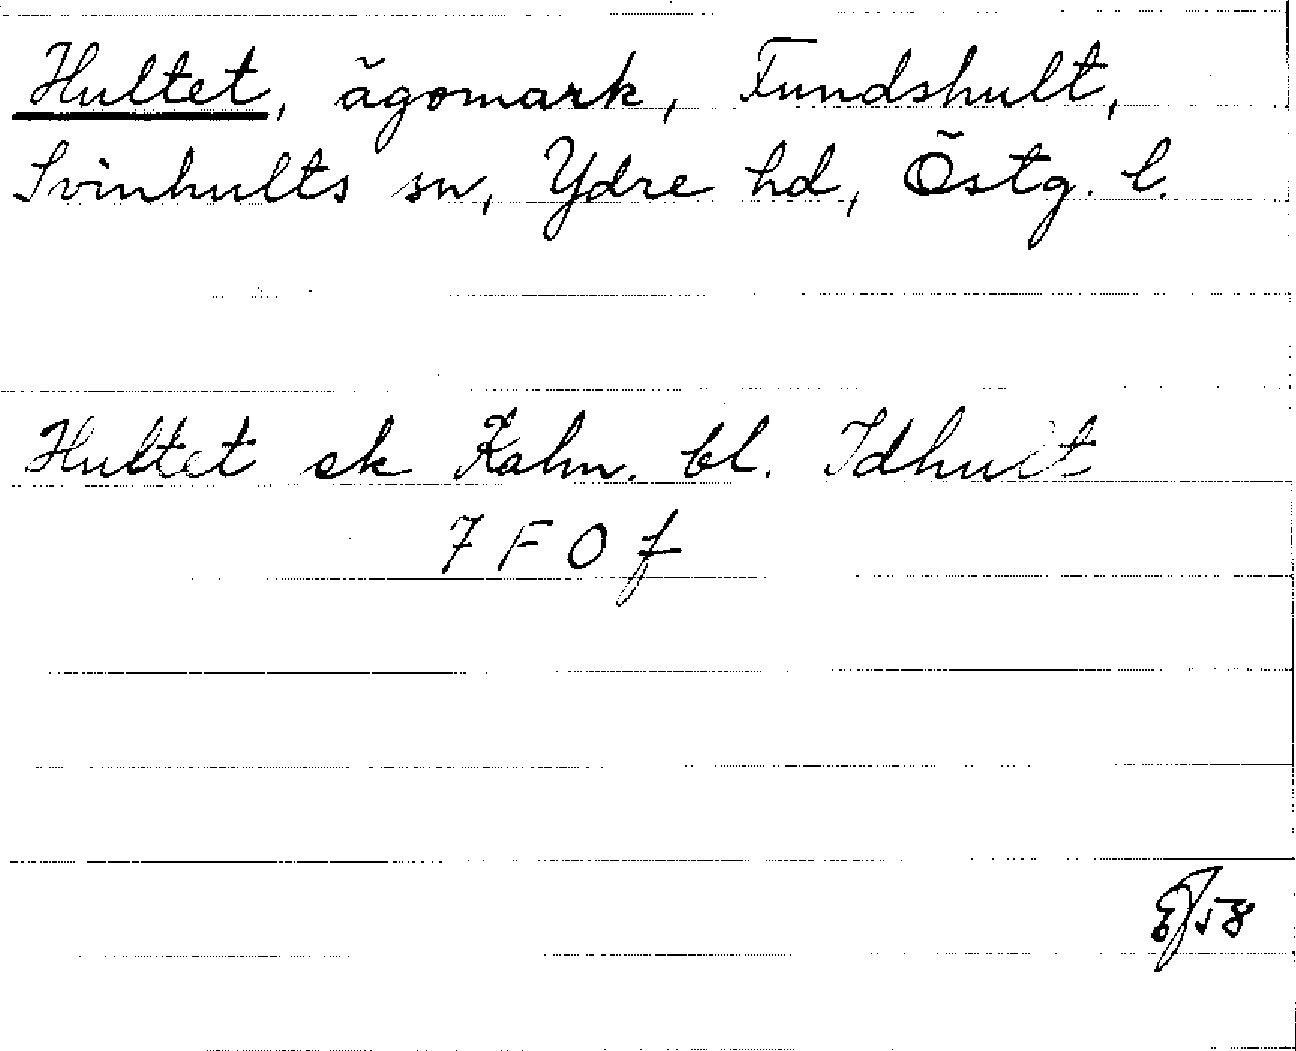 Hultet, ägomark, Fundshult,
Svinhults sn, Ydre hd, Östg. l.
Hultet ek Kalm. bl. Idhult
7 F 0 f
/58